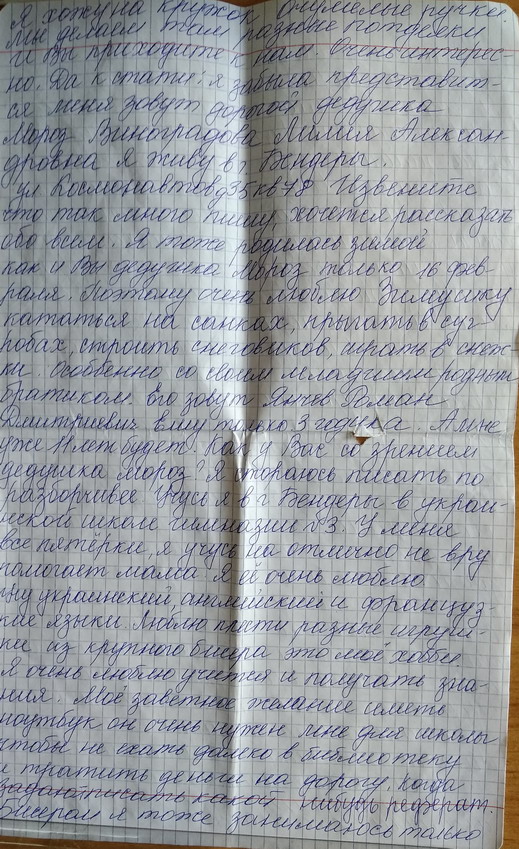 Я хожу на кружок очумелые ручки
мы делаем там разные потделки
и Вы приходите к нам. Очень интерес-
но. Да к стати: я забыла представит-
ся меня зовут дорогой дедушка
Мороз Виноградова Лилия Алексан-
дровна я живу в г. Бендеры.
ул Космонавтов д35 кв78 Извените
что так много пишу, хочется рассказать
обо всем. Я тоже родилась зимой
как и Вы дедушка Мороз только 16 фев-
раля. Поэтому очень люблю Зимушку
кататься на санках, прыгать в суг
робах, строить снеговиков, играть в снеж
ки. Особенно со своим младшим родным
братиком. Его зовут Янчев Роман
Дмитриевич ему только 3 годика. А мне
уже 11 лет будет. Как у Вас со зрением
дедушка Мороз? Я стораюсь писать по
разборчивее Учусь я в г. Бендеры в украи-
нской школе гимназии №3. У меня
все пятёрки, я учусь на отлично не вру
помогает мама. Я её очень люблю
учу украинский, английский и француз-
кие языки. Люблю плести разные игруш-
ки из крупного бисера это моё хобби.
Я очень люблю учится и получать зна-
ния. Моё заветное желание иметь
ноутбук он очень нужен мне для школы
чтобы не ехать далеко в библиотеку
и тратить деньги на дорогу, когда
писать какой реферат.
Бисером я тоже занимаюсь только